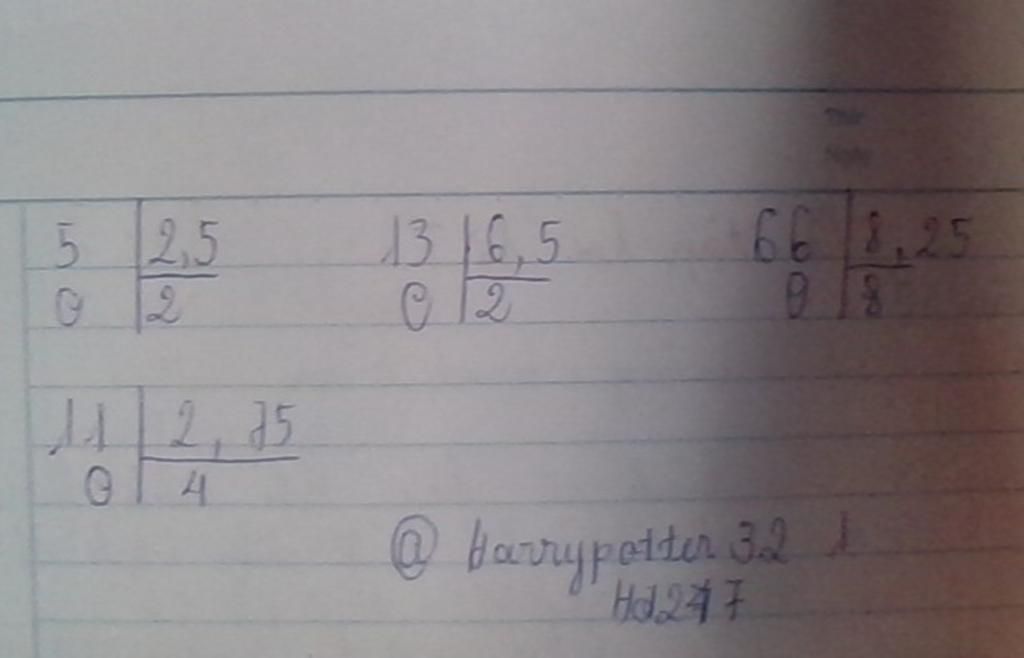 5 2,5 13 6,5 66 8,25
0 2 0 2 0 8
11 2,75
0 4
@ Harrypotter 32 1